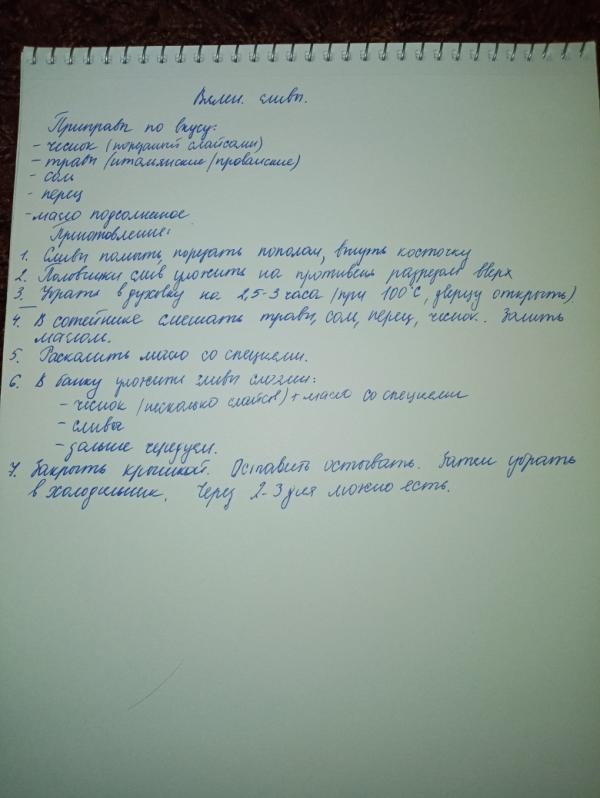 Вялен. сливы.
Приправы по вкусу:
- чеснок (порезанный слайсами)
- травы (итальянские / прованские)
- соль
- перец
- масло подсолнечное
Приготовление:
1. Сливы помыть, порезать пополам, вынуть косточку
2. Половинки слив уложить на противень разрезом вверх
3. Убрать в духовку на 2,5-3 часа (при 100°С, дверцу открыть)
4. В сотейнике смешать травы, соль, перец, чеснок. Залить
маслом.
5. Раскалить масло со специями.
6. В банку уложить сливы слоями:
- чеснок (несколько слайсов) + масло со специями
- сливы
- дальше чередуем.
7. Закрыть крышкой. Оставить остывать. Затем убрать
в холодильник. Через 2-3 дня можно есть.